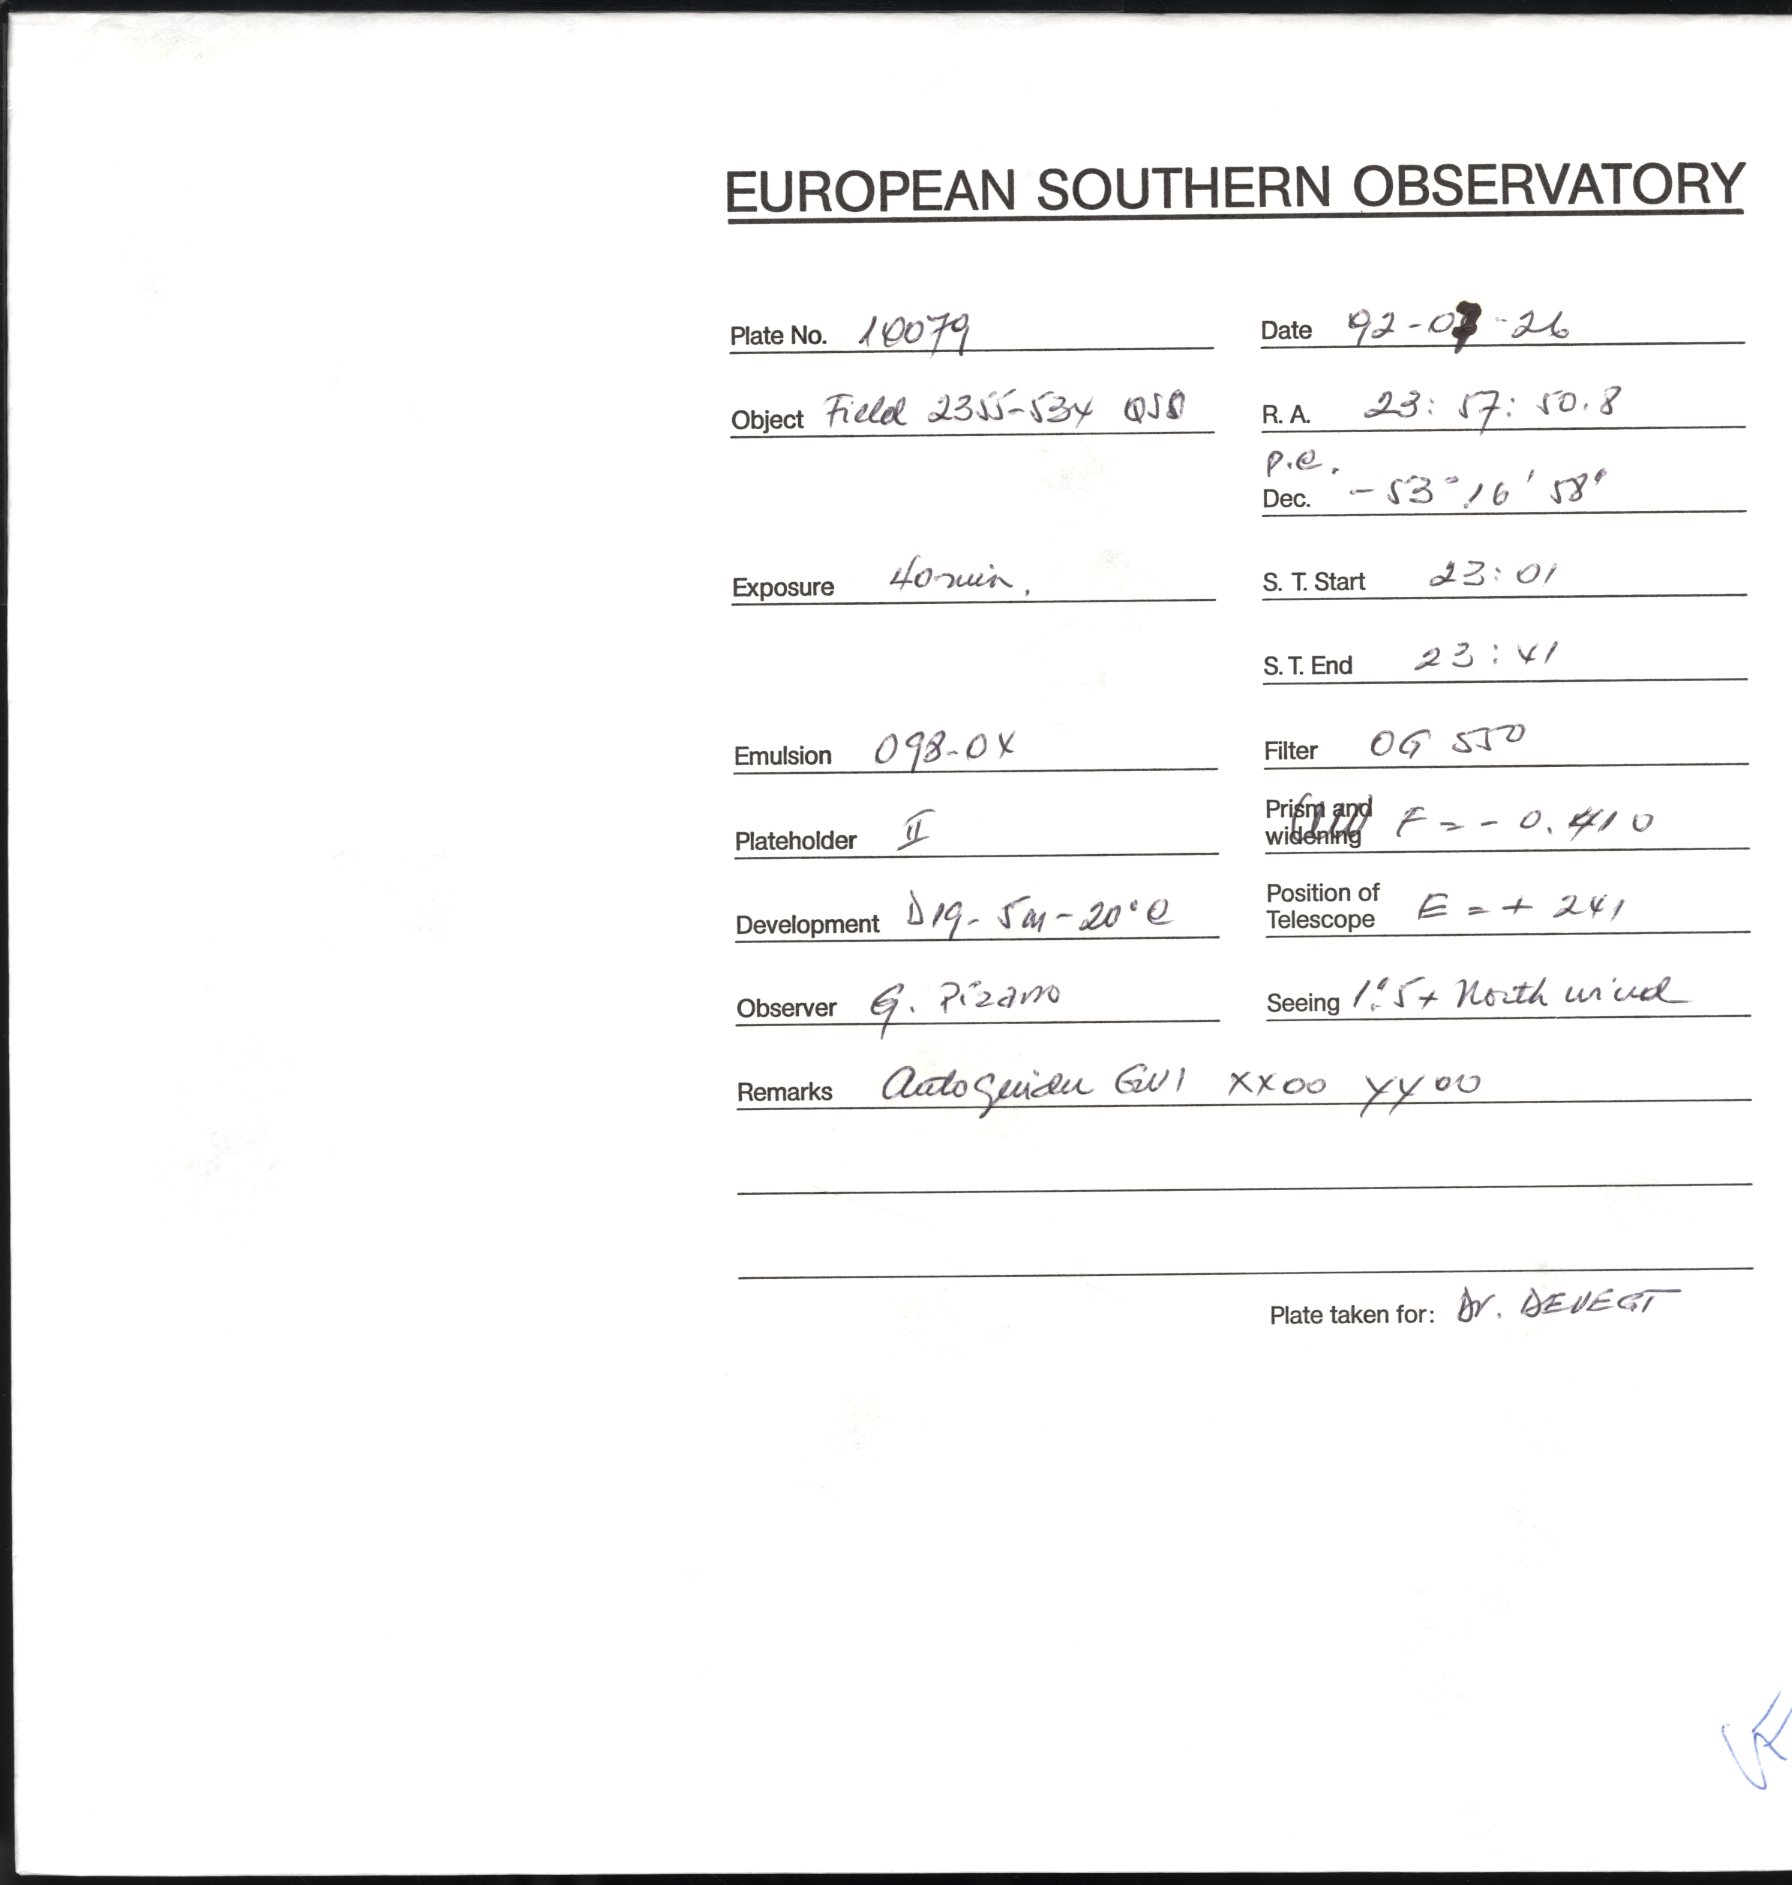 EUROPEAN SOUTHERN OBSERVATORY
Plate No. 10079
Date 92-07-26
Object Field 2355-534 QSO
R. A. 23: 57: 50.8
p.e.
Dec. -53° 16' 58"
Exposure 40 min.
S. T. Start 23:01
S. T. End 23:41
Emulsion 098-04
Filter OG 550
Plateholder II
Prism and widening F = - 0.410
Development D19- 5m - 20°C
Position of Telescope E = + 241
Observer G. Pizarro
Seeing 1".5 + North wind
Remarks Autoguider GW1 XX00 YY00
Plate taken for: Dr. DEVEGT